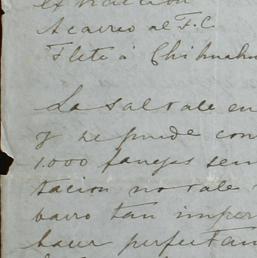 extracción
Acarreo al F.C
Flete á Chihuahu
La sal vale en
y se puede con
1.000 fanegas sem
tacion no vale
barro tan imper
hacer perfectam